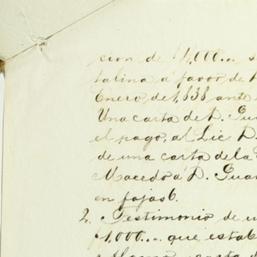 cion de $1,000... s
talina á favor de
Enero, de 1,838 ante
Una carta de D.
el pago, al Lic. D.
de una carta de la
Macedo á D. Gua
en fojas 6.
2. Testimonio de u
$1,000... que estab